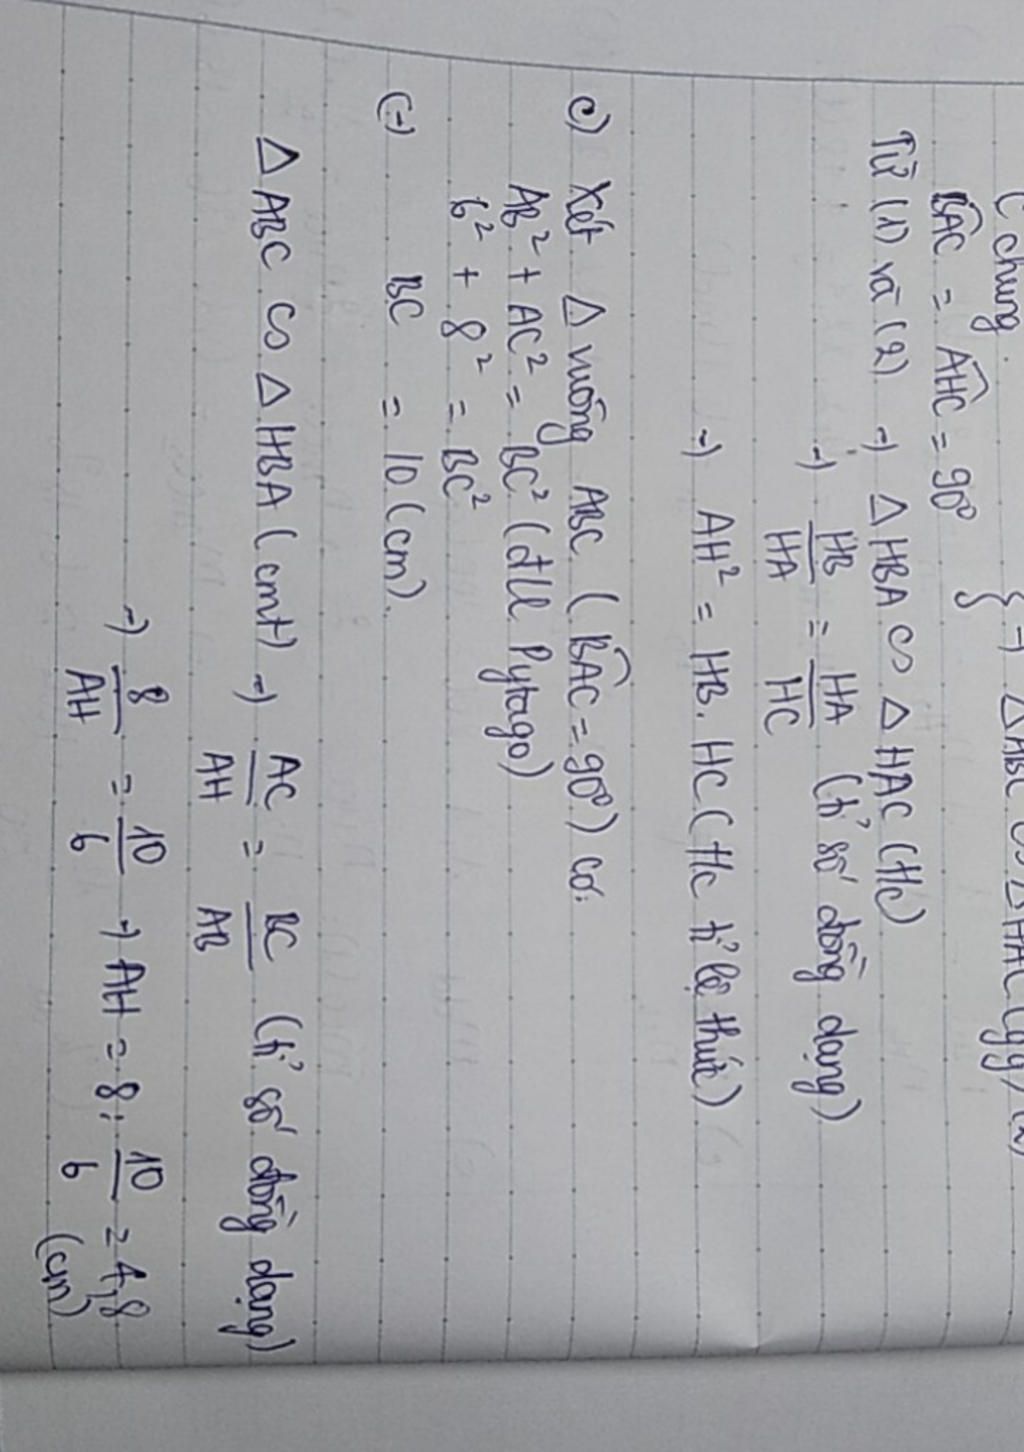 C chung.
BAC = AHC = 90° } → △ABC ∽ △HAC (gg) (2)
Từ (1) và (2) → △HBA ∽ △HAC (t/c)
→ HB/HA = HA/HC (tỉ số đồng dạng)
→ AH² = HB. HC (t/c tỉ lệ thức)
c) Xét △ vuông ABC (BAC = 90°) có:
AB² + AC² = BC² (đlí Pytago)
6² + 8² = BC²
(→) BC = 10 (cm).
△ABC ∽ △HBA (cmt) → AC/AH = BC/AB (tỉ số đồng dạng)
→ 8/AH = 10/6 → AH = 8 : 10/6 = 4,8
(cm)